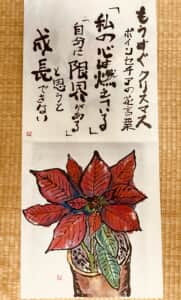 もうすぐクリスマス
ポインセチアの花言葉
「私の心は燃えている」
「自分に限界がある」
と思うと
成長できない